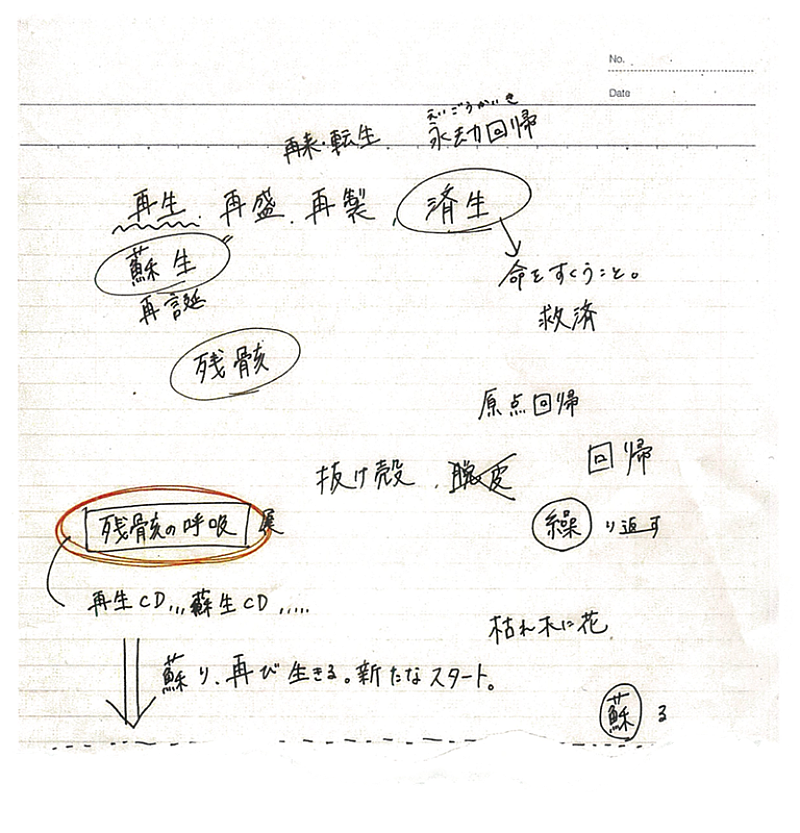 No.
Date
えいごうかいき
再来・転生、永劫回帰
再生、再盛、再製、済生
蘇生
命をすくうこと。
再誕
救済
残骸
原点回帰
抜け殻、脱皮
回帰
残骸の呼吸 展
繰り返す
再生CD,,, 蘇生CD .....
枯れ木に花
蘇り、再び生きる。新たなスタート。
蘇る